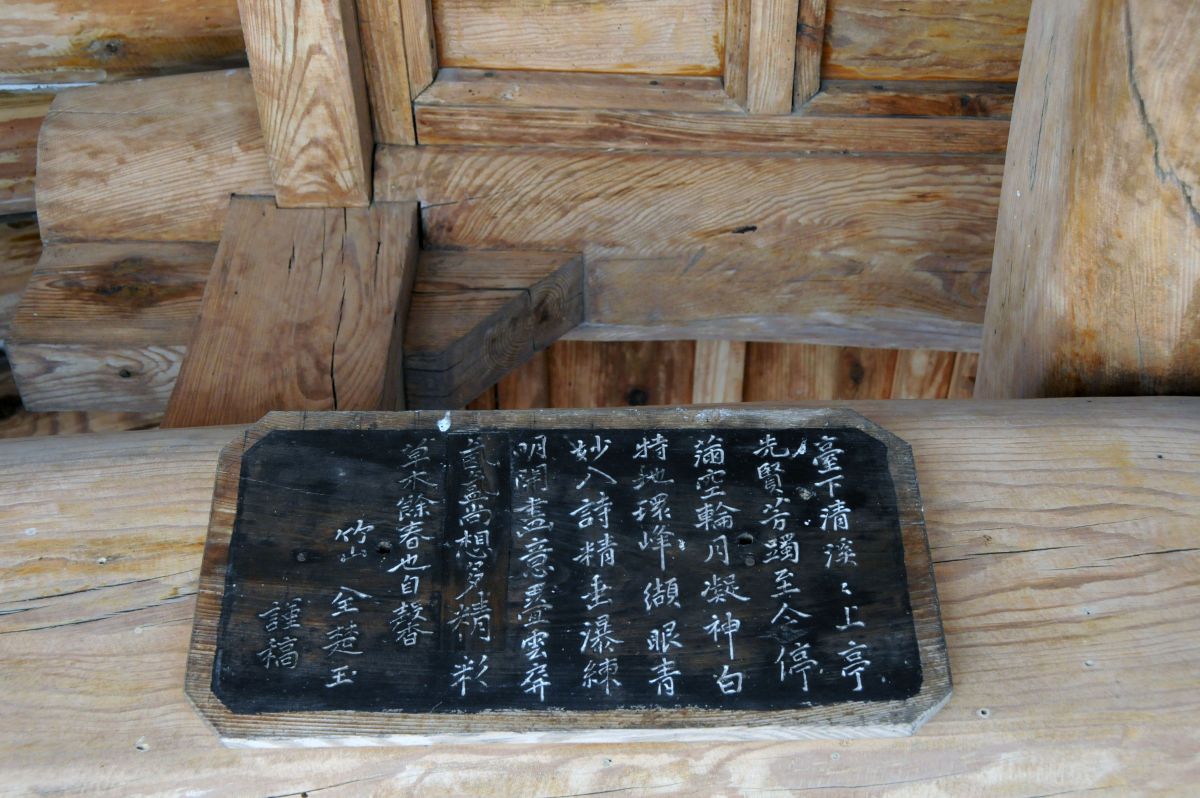 臺下清溪〻上亭
先賢芳躅至今停
滿空輪月凝神白
特地環峰纈眼青
妙入詩精垂瀑練
明開畵意疊雲屛
尚想多精彩
草木餘春也自馨
竹山 全楚玉
謹稿